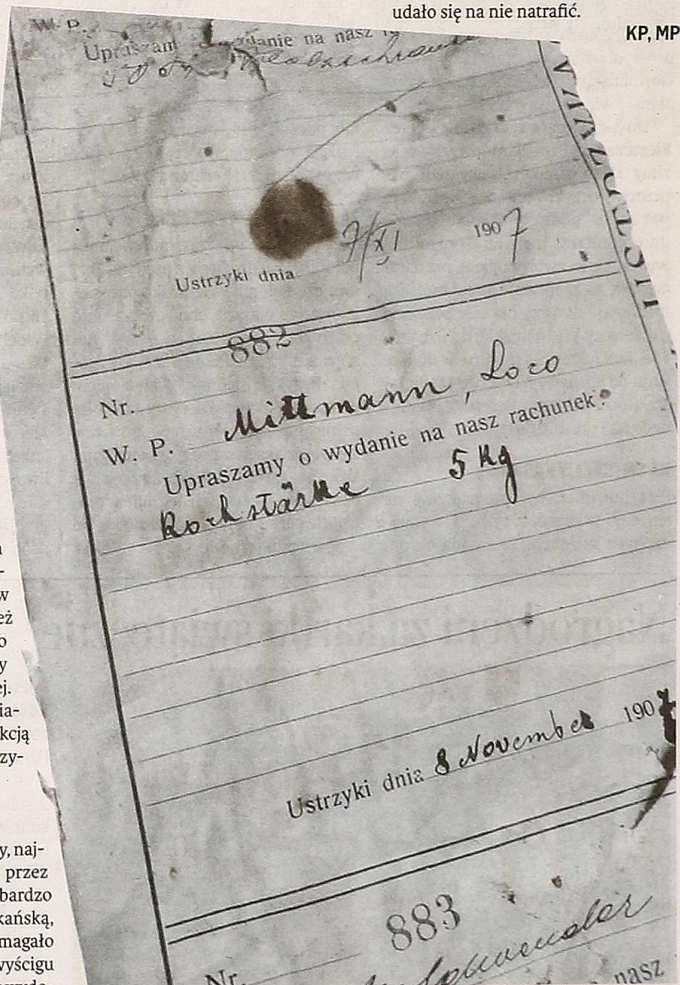 udało się na nie natrafić.
KP, MP
W. P.
Upraszam wydanie na nasz
7/XI 1907
Ustrzyki dnia
882
Nr.
W. P. Mittmann, Loco
Upraszamy o wydanie na nasz rachunek:
Kochstärke 5 Kg
Ustrzyki dnia 8 November 1907
883
Nr.
nasz
w
eż
o
y
ej.
ia-
kcją
zy-
y, naj-
przez
bardzo
kańską,
magało
wyścigu